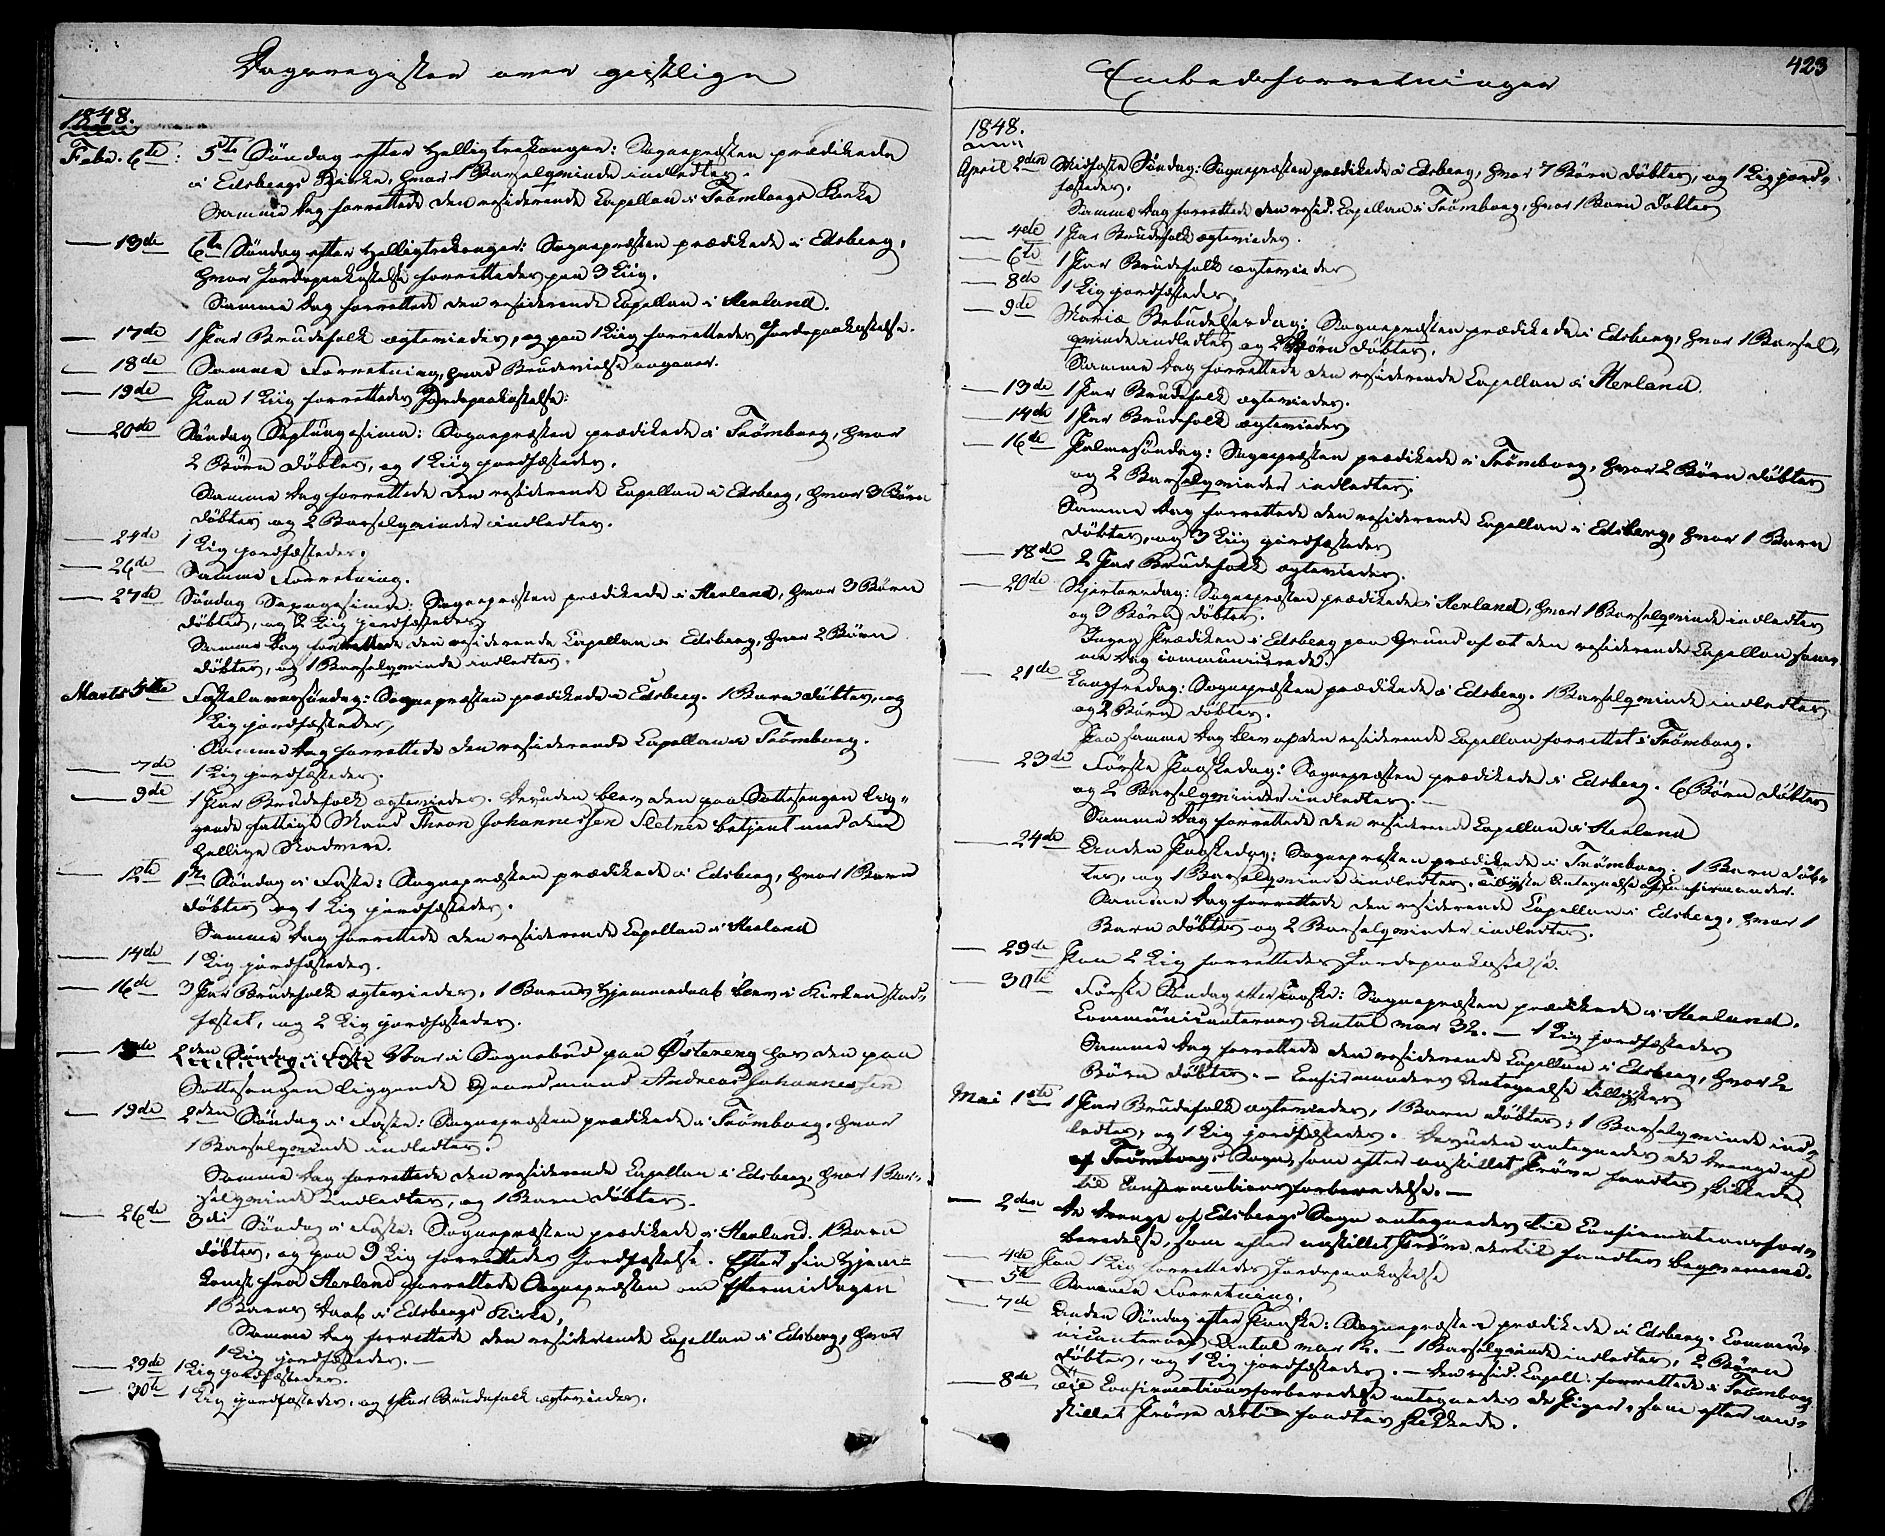 Dagsregister over geistlige
1848.
Febr. 6te: 5te Søndag efter Helligtrekonger: Sognepræsten prædikede
i Edsbergs Kirke, hvor 1 Barselqvinde indledtes.
Samme Dag forrettede den residerende Capellan i Trømborgs Kirke
— 13de 6te Søndag efter Helligtrekonger: Sognepræsten prædikede i Edsberg,
hvor Jordspaakastelse forrettedes paa 3 Liig.
Samme Dag forrettede den residerende Capellan i Herland.
— 17de 1 Par Brudefolk ægteviedes, og paa 1 Liig forrettedes Jordspaakastelse.
— 18de Samme Forretning, hvad Brudevielse angaaer.
— 19de Paa 1 Liig forrettedes Jordspaakastelse.
— 20de Søndag Septuagesima: Sognepræsten prædikede i Trømborg, hvor
2 Børn døbtes, og 1 Liig jordfæstedes.
Samme Dag forrettede den residerende Capellan i Edsberg, hvor 3 Børn
døbtes og 2 Barselqvinder indledtes.
— 24de 1 Lig jordfæstedes.
— 26de Samme Forretning.
— 27de Søndag Sexagesima: Sognepræsten prædikede i Herland, hvor 3 Børn
døbtes, og 2 Lig jordfæstedes.
Samme Dag forrettede den residerende Capellan i Edsberg, hvor 2 Børn
døbtes, og 1 Barselqvinde indledtes.
Marts 5te Fastelavnssøndag: Sognepræsten prædikede i Edsberg. 1 Barn døbtes, og
1 Lig jordfæstedes,
Samme Dag forrettede den residerende Capellan i Trømborg.
— 7de 1 Lig jordfæstedes.
— 9de 1 Par Brudefolk ægteviedes. Desuden blev den paa Sottesengen lig-
gende fattige Mand Thron Johannessen Sletner betjent med den
hellige Nadvere.
— 12te 1ste Søndag i Faste: Sognepræsten prædikede i Edsberg, hvor 1 Barn
døbtes og 1 Lig jordfæstedes.
Samme Dag forrettede den residerende Capellan i Herland
— 14de 1 Lig jordfæstedes.
— 16de 3 Par Brudefolk ægteviedes, 1 Barns Hjemmedaab blev i Kirken stad-
fæstet, og 2 Lig jordfæstedes.
2den Søndag i Faste Var i Sognebud paa Østereng hos den paa
Sottesengen liggende Gaardmand Andreas Johannessen
— 19de 2den Søndag i Faste: Sognepræsten prædikede i Trømborg, hvor
1 Barselqvinde indledtes.
Samme Dag forrettede den residerende Capellan i Edsberg, hvor 1 Bar-
selqvinde indledtes, og 1 Barn døbtes.
— 26de 3die Søndag i Faste: Sognepræsten prædikede i Herland. 1 Barn
døbtes, og paa 9 Lig forrettedes Jordfæstelse. Efter sin Hjem-
komst fra Herland forrettede Sognepræsten om Eftermiddagen
1 Barns Daab i Edsbergs Kirke,
Samme Dag forrettede den residerende Capellan i Edsberg, hvor
1 Lig jordfæstedes. —
— 29de 1 Lig jordfæstedes.
— 30te 1 Lig jordfæstedes, og 1 Par Brudefolk ægteviedes.
Embedsforretninger
423
1848.
April 2den Midfaste Søndag: Sognepræsten prædikede i Edsberg, hvor 7 Børn døbtes, og 1 Lig jord-
fæstedes.
Samme Dag forrettede den resid. Capellan i Trømborg, hvor 1 Barn døbtes
— 4de 1 Par Brudefolk ægteviedes.
— 6te 1 Par Brudefolk ægteviedes
— 8de 1 Lig jordfæstedes.
— 9de Mariæ Bebudelsesdag: Sognepræsten prædikede i Edsberg, hvor 1 Barsel-
qvinde indledtes og 2 Børn døbtes.
Samme Dag forrettede den residerende Capellan i Herland.
— 13de 1 Par Brudefolk ægteviedes.
— 14de 1 Par Brudefolk ægteviedes
— 16de Palmesøndag: Sognepræsten prædikede i Trømborg, hvor 2 Børn døbtes
og 2 Barselqvinder indledtes.
Samme Dag forrettede den residerende Capellan i Edsberg, hvor 1 Barn
døbtes, og 3 Liig jordfæstedes
— 18de 2 Par Brudefolk ægteviedes.
— 20de Skjertorsdag: Sognepræsten prædikede i Herland, hvor 1 Barselqvinde indledtes
og 3 Børn døbtes.
Ingen Prædiken i Edsberg paa Grund af at den residerende Capellan sam-
me Dag communicerede.
— 21de Langfredag: Sognepræsten prædikede i Edsberg. 1 Barselqvinde indledtes
og 2 Børn døbtes.
Paa samme Dag blev af den residerende Capellan forrettet i Trømborg.
— 23de Første Paaskedag: Sognepræsten prædikede i Edsberg. 6 Børn døbtes
og 2 Barselqvinder indledtes. —
Samme Dag forrettede den residerende Capellan i Herland
— 24de Anden Paaskedag: Sognepræsten prædikede i Trømborg. 1 Barn døb-
tes, og 1 Barselqvinde indledtes. Tillyste Antegnelse af Confirmander.
Samme Dag forrettede den residerende Capellan i Edsberg, hvor 1
Barn døbtes og 2 Barselqvinder indledtes.
— 29de Paa 2 Lig forrettedes Jordspaakastelse.
— 30te Første Søndag efter Paaske: Sognepræsten prædikede i Herland.
Communicanternes Antal var 32. — 1 Lig jordfæstedes
Samme Dag forrettede den residerende Capellan i Edsberg, hvor 2
Børn døbtes. — Confirmanders Antegnelse tillystes
Mai 1ste 1 Par Brudefolk ægteviedes, 1 Barn døbtes; 1 Barselqvinde ind-
ledtes, og 1 Lig jordfæstedes. Desuden antegnedes de Drenge af
af Trømborgs Sogn, som efter anstillet Prøve fandtes skikkede
til Confirmationsforberedelse. —
— 2den De Drenge af Edsbergs Sogn antegnedes til Confirmationsfor-
beredelse, som efter anstillet Prøve dertil fandtes beqvemme.
— 4de Paa 1 Lig forrettedes Jordspaakastelse
— 5te Samme Forretning.
— 7de Anden Søndag efter Paaske: Sognepræsten prædikede i Edsberg. Commu-
nicanternes Antal var 12. — 1 Barselqvinde indledtes, 2 Børn
døbtes, og 1 Lig jordfæstedes. — Den resid. Capell. forrettede i Trømborg
— 8de Til Confirmationsforberedelse antegnedes de Piger, som efter an-
stillet Prøve dertil fandtes skikkede.